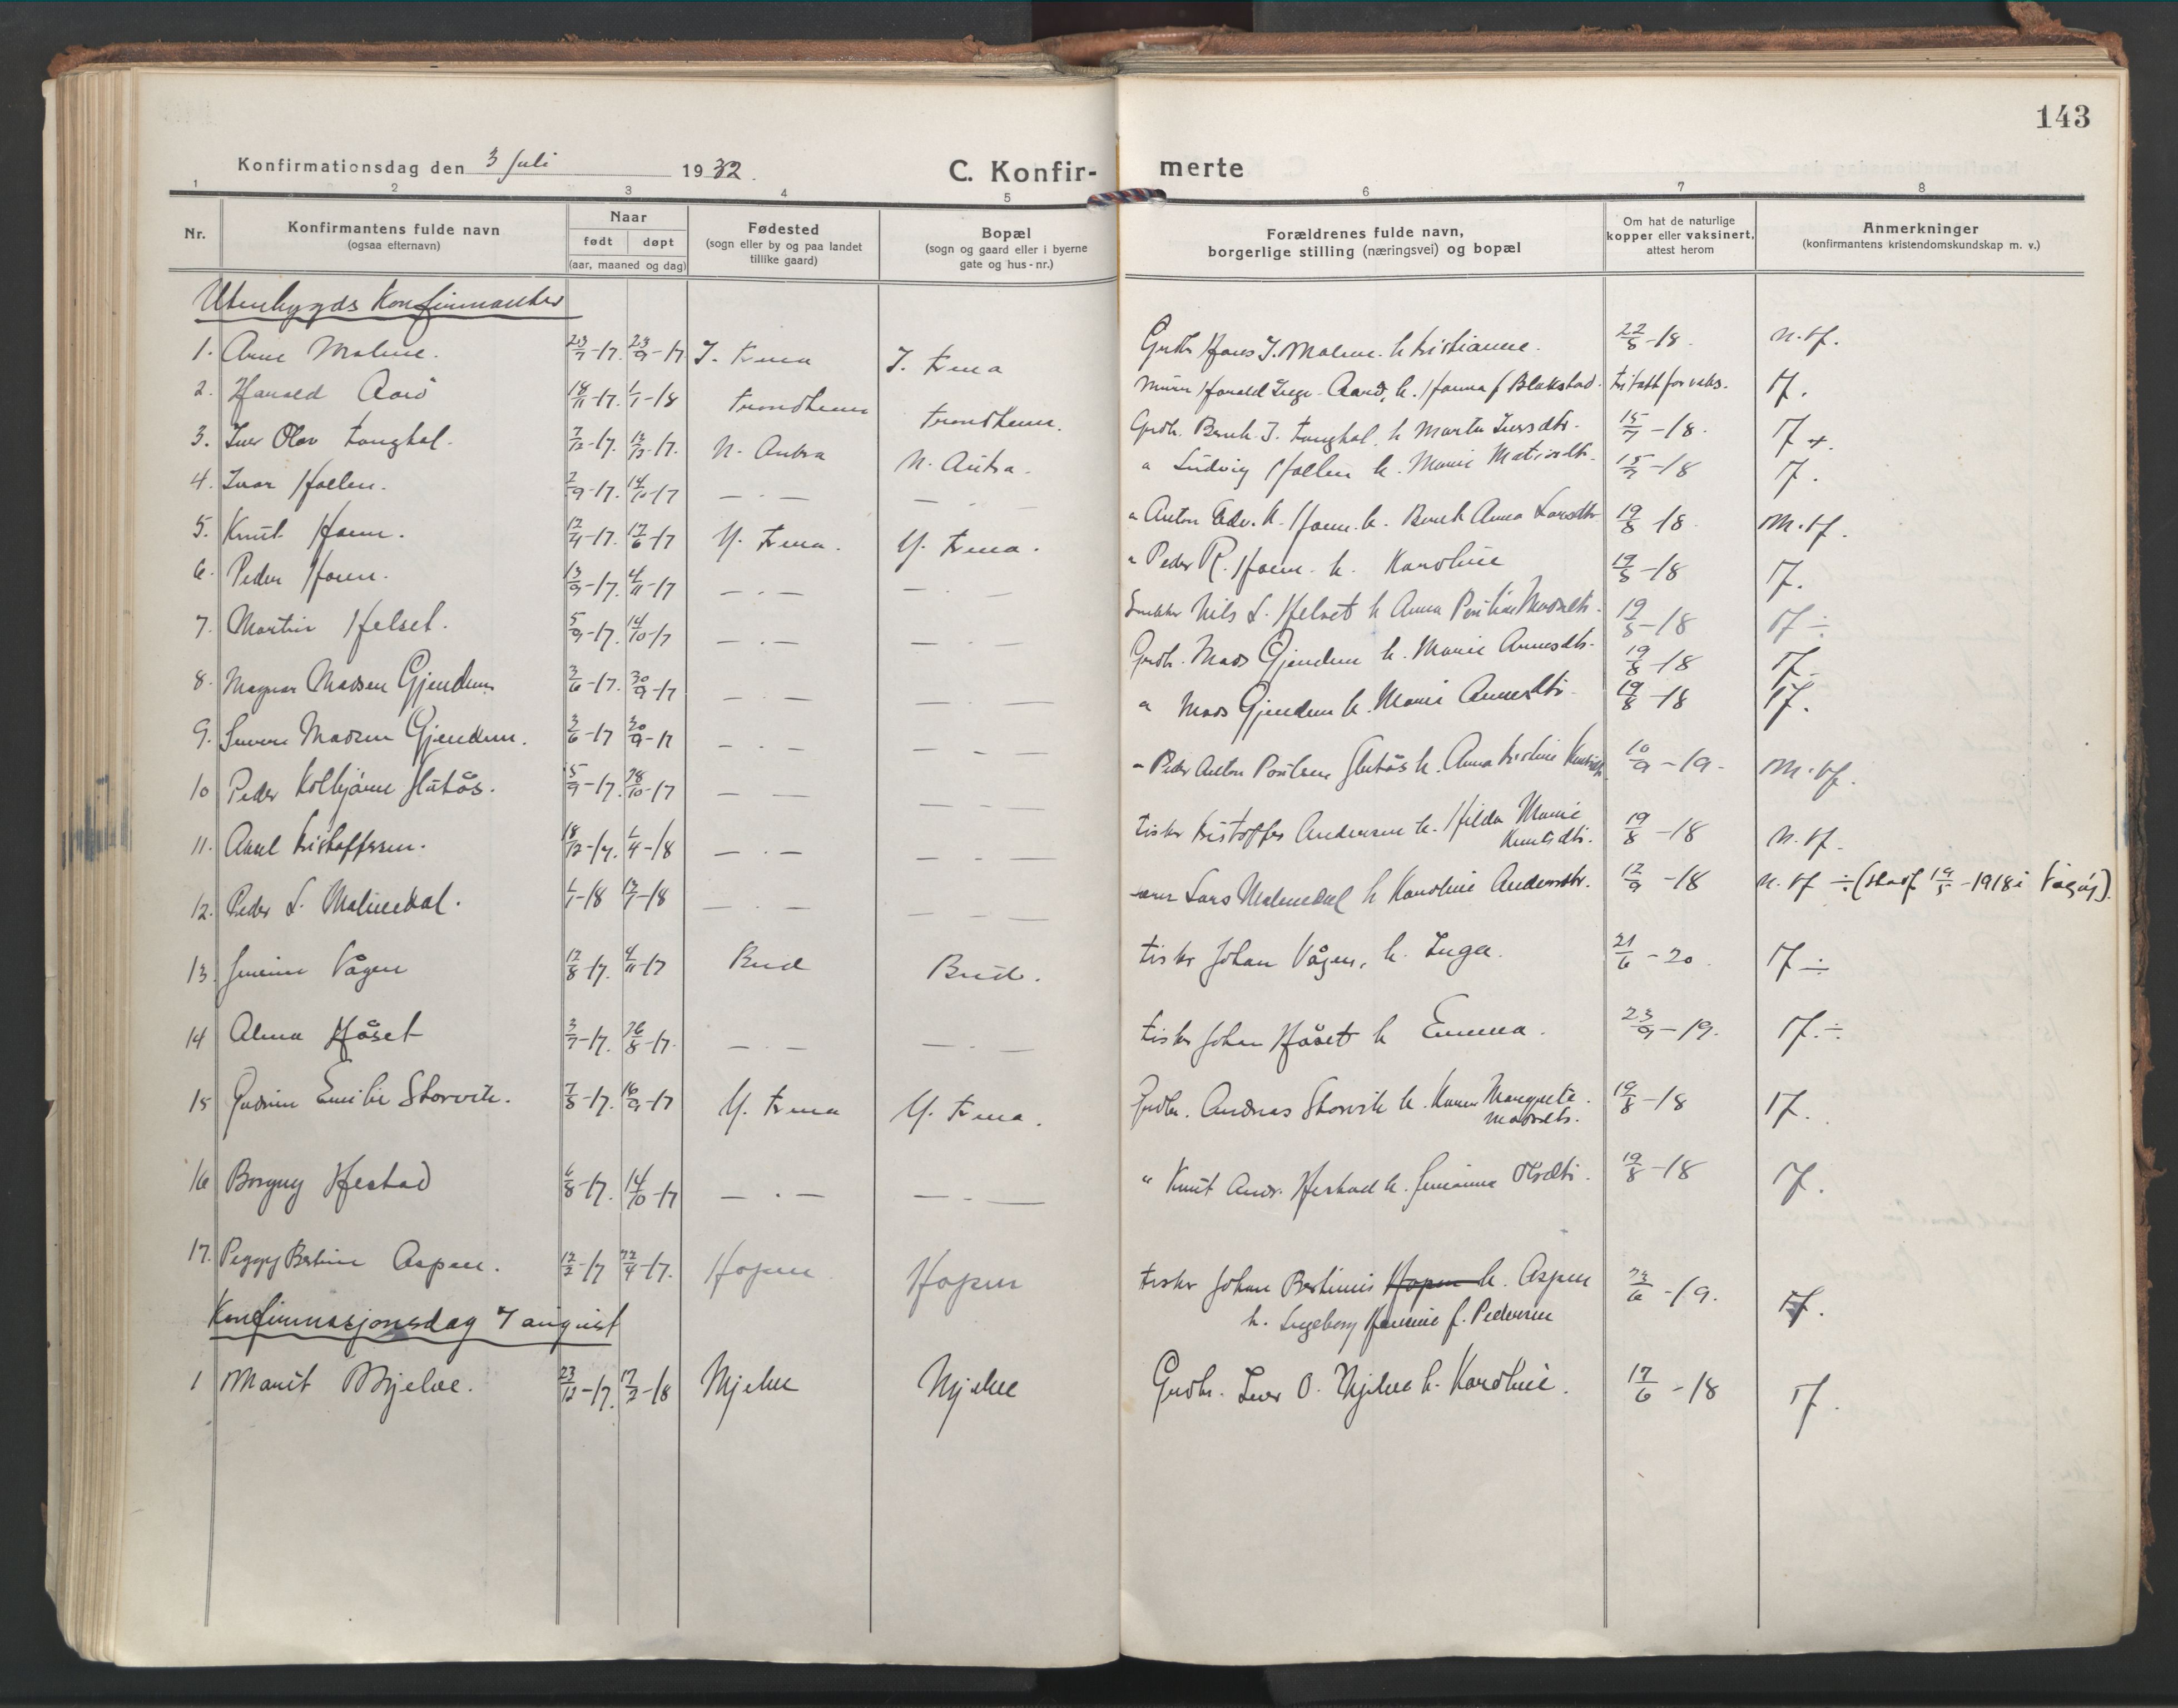 143
Konfirmationsdag den 3 Juli 1932.
C. Konfir- merte
1 2 3 4 5 6 7 8
Nr.
Konfirmantens fulde navn
(ogsaa efternavn)
Naar
født døpt
(aar, maaned og dag)
Fødested
(sogn eller by og paa landet
tillike gaard)
Bopæl
(sogn og gaard eller i byerne
gate og hus-nr.)
Forældrenes fulde navn,
borgerlige stilling (næringsvei) og bopæl
Om hat de naturlige
kopper eller vaksinert,
attest herom
Anmerkninger
(konfirmantens kristendomskundskap m. v.)
Utenbygds Konfirmanter
1. Arne Malme. 23/7-17. 23/9-17 J. Fræna J. Fræna Grdbr. Hans J. Malme. h Kristianne. 22/8-18. n. tf.
2. Harald Aarø 18/11-17. 1/1-18 Trondheim Trondheim. Harald Inge Aarø, h. Hanna f Blakstad. fritatt for vaks. tf.
3. Iver Olav Tonghol. 7/12-17. N. Aukra N. Aukra. Grdb. Bernh. J. Tonghol. h Marta Iversdtr. 15/7-18. tf +
4. Ivar Hollen. 2/9-17. 14/10-17 — . — — . — " Ludvig Hollen h. Marie 15/7-18 tf.
5. Knut Haem. 12/4-17. 17/6-17 Y. Fræna. Y. Fræna. " Anton Edv. K. Haem. h. Anna Larsdtr 19/8-18. M. tf.
6. Peder Haem. 13/9-17. 4/11-17 — . — — . — " Peder R. Haem. h. Karoline 19/8-18 tf.
7. Martin Helset. 5/9-17. 14/10-17 — . — — . — Snekker Nils L. Helset h Anna Madsdtr. 19/8-18 tf ÷
8. Magnar Madsen Gjendem 3/6-17. 30/9-17 — . — — . — Grdb. Mads Gjendem h. Marie Arnesdtr. 19/8-18 tf.
9. Sverre Madsen Gjendem. 3/6-17 30/9-17 — . — — . — " Mads Gjendem h. Marie Arnesdtr. 19/8-18 tf.
10 Peder Kolbjørn Slutås. 5/9-17. 28/10-17 — — — - — " Peder Anton Poulsen Slutås h. Anna Kristine 10/9-19. M. tf.
11. Aksel Kristoffersen. 18/12-17. 1/4-18 — . — — . — Fisker Kristoffer Andersen h. Hilda Marie
Knutsdtr. 19/8-18 n. tf.
12. Peder L. Malmedal. 1/1-18 — . — — . — Lars Malmedal h Karoline Andersdtr. 12/9-18 n. tf ÷ (-1918 i Vågøy).
13. Jenine Vågen 12/8-17. 4/11-17 Bud Bud. Fisker Johan Vågen, h. Inga. 21/6-20 tf ÷
14 Alma Håset 3/7-17. 26/8-17. — . — — . — Fisker Johan Håset h Emma. 23/9-19. tf. ÷
15 Gudrun Emilie Storvik. 7/8-17. 16/9-17 Y. Fræna Y. Fræna. Grdbr. Andreas Storvik h. Karen Margreta
Madsdtr. 19/8-18 tf.
16 Borgny Hestad 6/8-17. 14/10-17 — . — — . — " Knut Andr. Hestad h. Olsdtr. 19/8-18 tf.
17. Peggy Bertine Aspen. 12/2-17 22/4-17. Hopen Hopen Fisker Johan Bertinius Hopen h. Aspen
h. Ingeborg f. Pedersen -19. tf.
Konfirmasjonsdag 7 august
1 Marit Mjelve. 23/12-17. 17/2-18 Mjelve Mjelve Grdbr. Iver O. Mjelve h. Karoline. 17/6-18 tf.